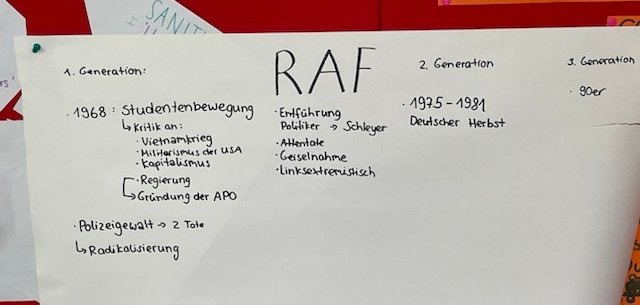 SANIT
RAF
1. Generation:
· 1968 : Studentenbewegung
↳ Kritik an:
· Vietnamkrieg
· Militarismus der USA
· Kapitalismus
· Regierung
↳ Gründung der APO
· Polizeigewalt → 2 Tote
↳ Radikalisierung
· Entführung
Politiker → Schleyer
· Attentate
· Geiselnahme
· Linksextremistisch
2. Generation
· 1975 - 1981
Deutscher Herbst
3. Generation
· 90er